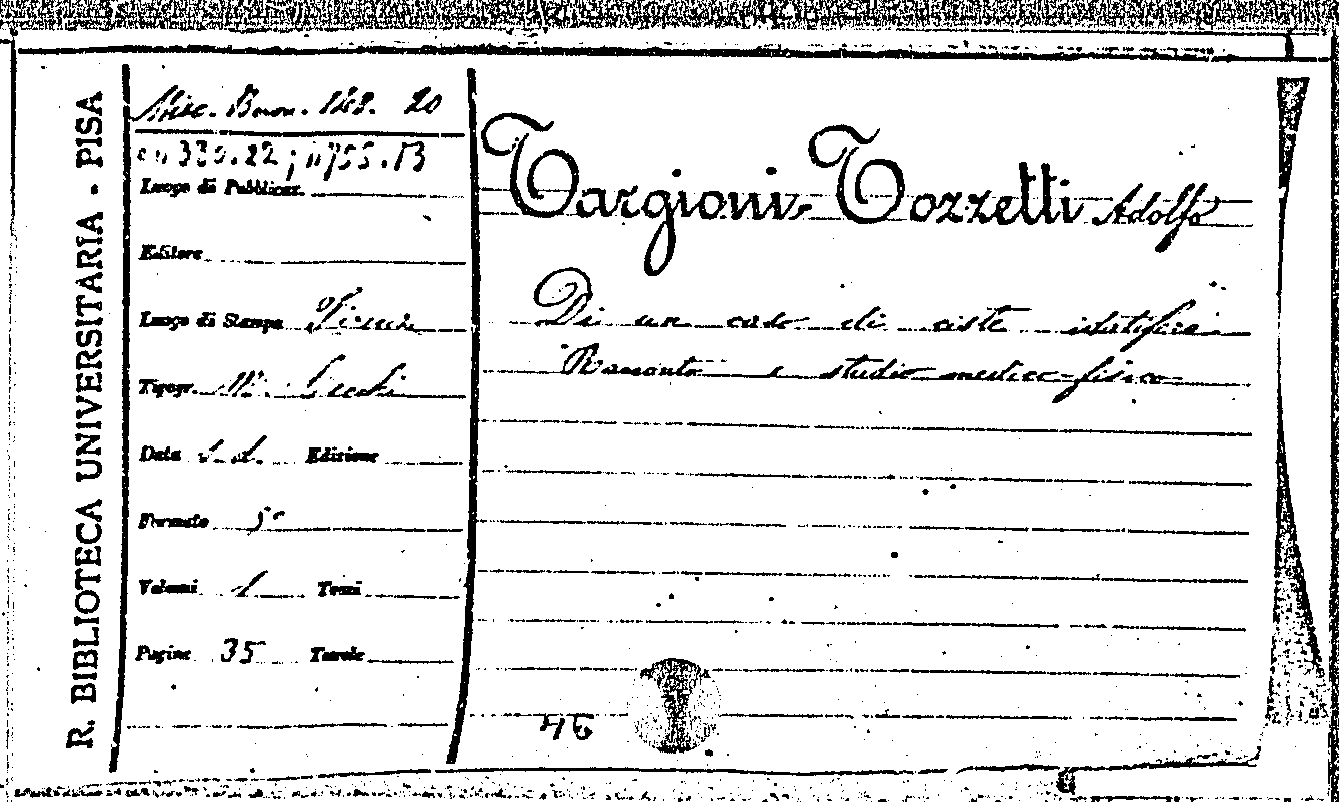 R. BIBLIOTECA UNIVERSITARIA - PISA
Misc. Bonn. 20
330.22; 755.13
Luogo di Pubblicaz.
Editore
Luogo di Stampa Firenze
Tipogr. M. Cecchi
Data s.d. Edizione
Formato
Volumi 1 Tomi
Pagine 35 Tavole
Targioni-Tozzetti Adolfo
Di un caso di ciste idatifera
Racconto e studio medico-fisico
46